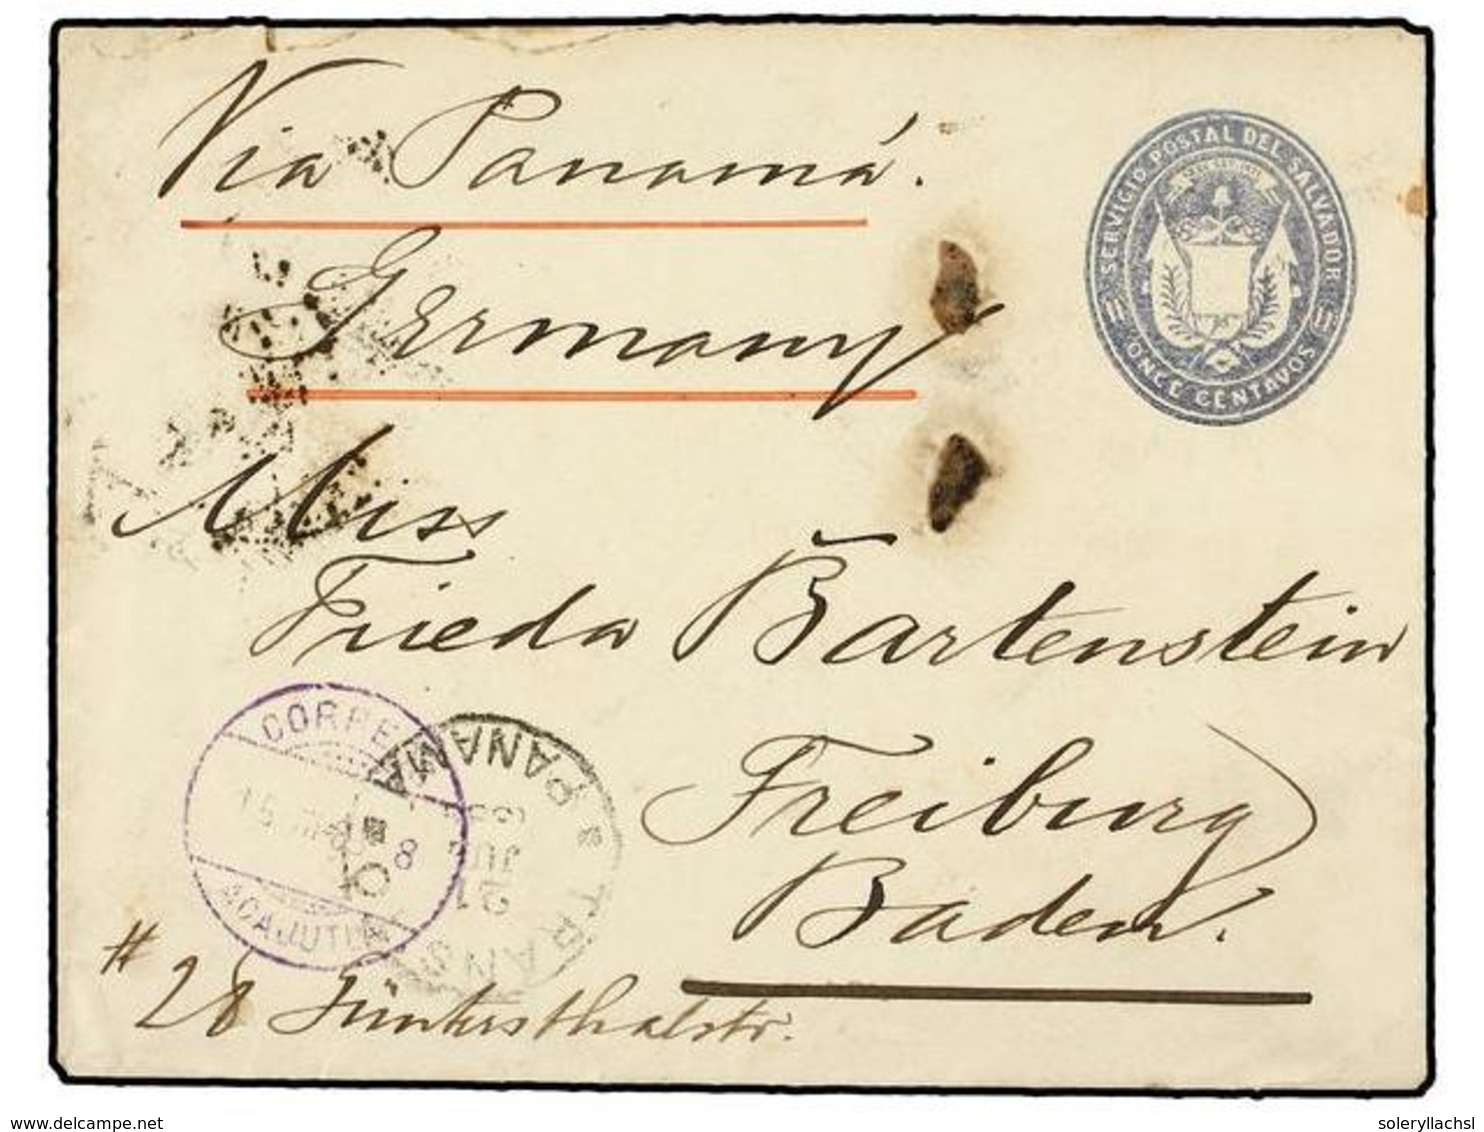 Via Panamá.
SERVICIO POSTAL DEL SALVADOR
11 ONCE CENTAVOS 11
Germany
Miss
Frieda Bartenstein
Freiburg
Baden.
CORRE
8
ACAJUTLA
PANAMA
JUL
21
TRANSI
# 28
delcampe.net
soleryllachsl